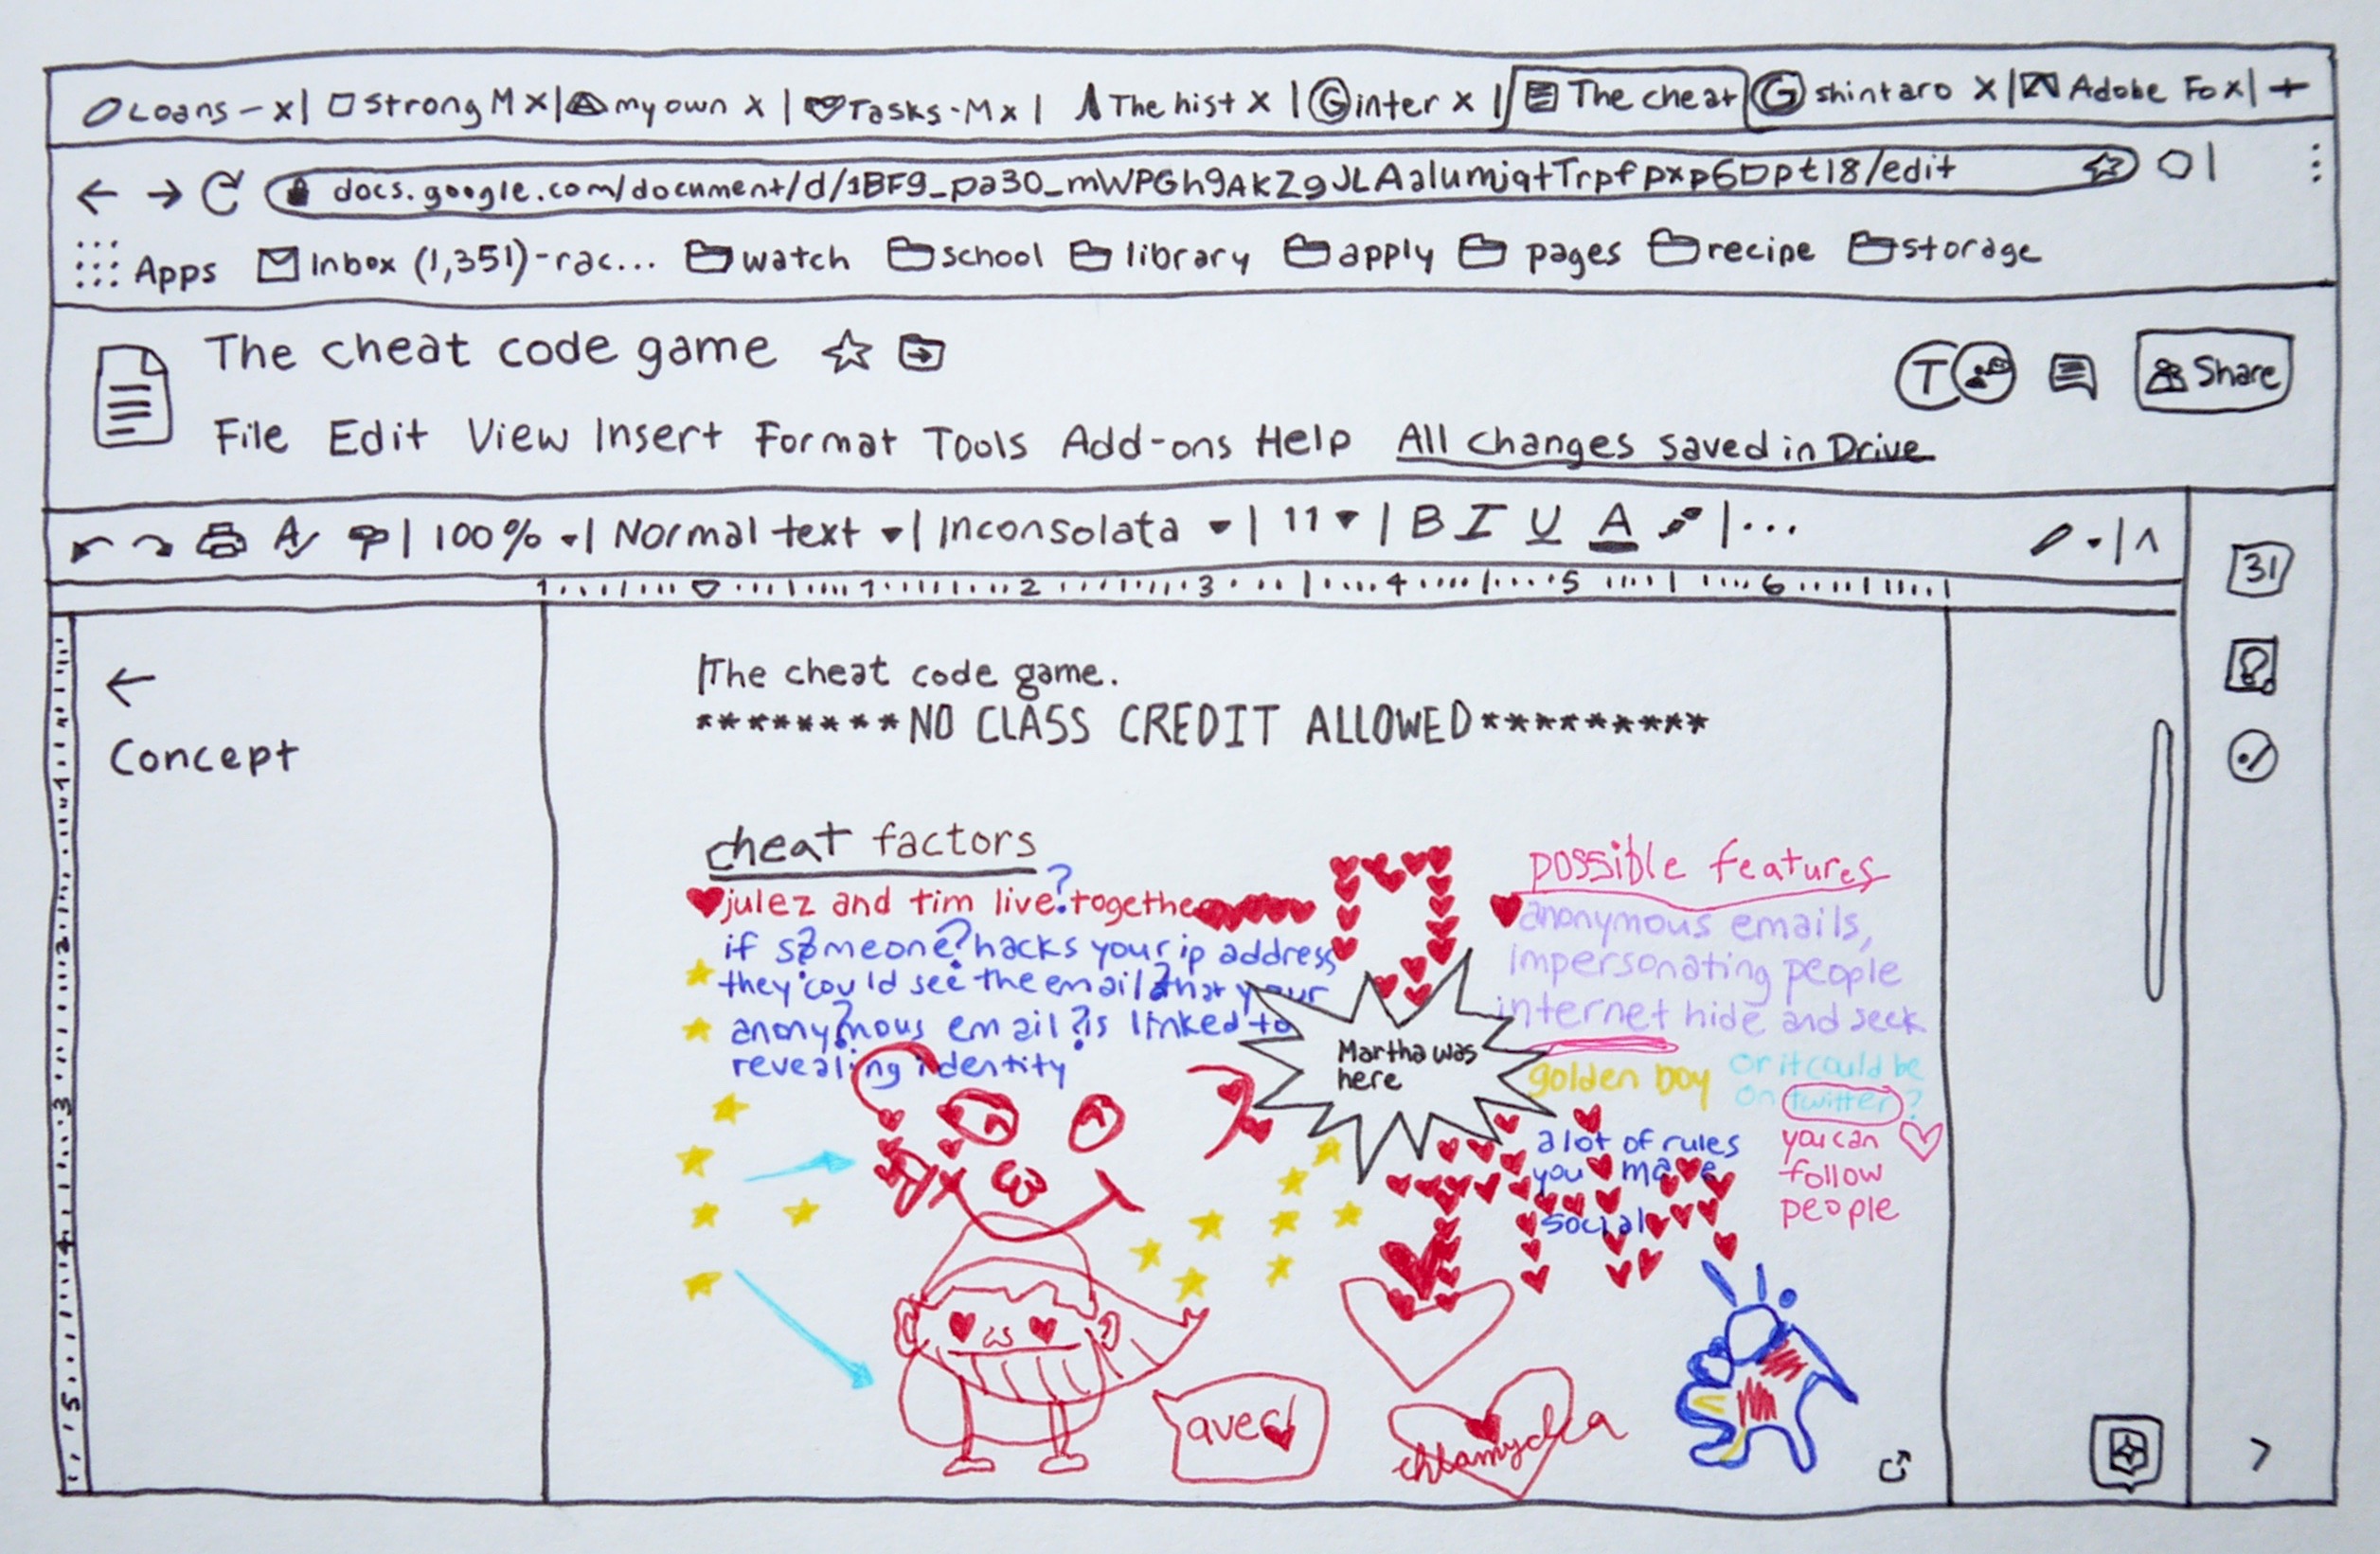 Loans - x | Strong M x | my own x | Tasks - M x | The hist x | G inter x | The cheat | G shintaro x | Adobe Fo x | +
docs.google.com/document/d/1BF9_pa30_mWPGh9AKZ9JLAalumiqtTrpfpxp6Dpt18/edit
Apps Inbox (1,351)-rac... watch school library apply pages recipe storage
The cheat code game
T Share
File Edit View Insert Format Tools Add-ons Help All changes saved in Drive
100% Normal text Inconsolata 11 B I U A ...
1 1 2 3 4 5 6
31
Concept
1
2
3
4
5
The cheat code game.
********NO CLASS CREDIT ALLOWED*********
cheat factors
julez and tim live?together
if s?meone?hacks your ip address
they could see the email?that your
anony?mous email?is linked to
revealing identity
Martha was
here
avec
chlamydia
possible features
anonymous emails,
impersonating people
internet hide and seek
golden boy
or it could be
on twitter?
you can
follow
people
a lot of rules
you make
social